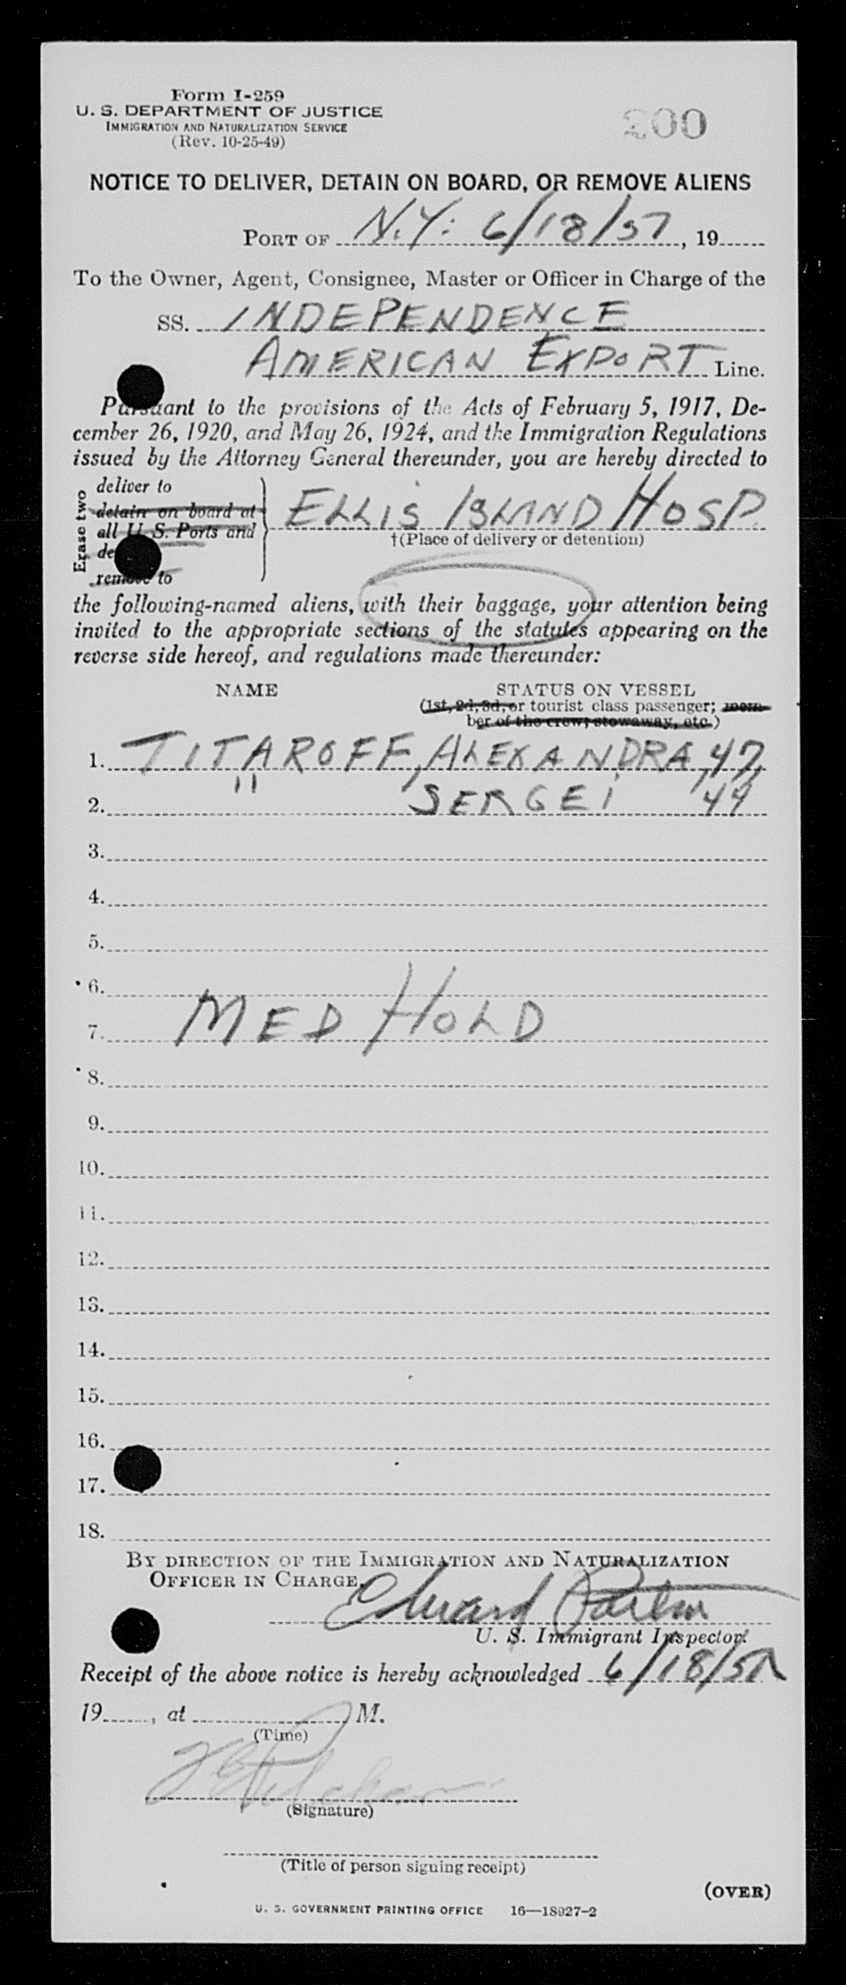 Form I-259
U. S. DEPARTMENT OF JUSTICE
IMMIGRATION AND NATURALIZATION SERVICE
(Rev. 10-25-49)
200
NOTICE TO DELIVER, DETAIN ON BOARD, OR REMOVE ALIENS
PORT OF N.Y: 6/18/57, 19
To the Owner, Agent, Consignee, Master or Officer in Charge of the
SS. INDEPENDENCE
AMERICAN EXPORT Line.
Pursuant to the provisions of the Acts of February 5, 1917, De-
cember 26, 1920, and May 26, 1924, and the Immigration Regulations
issued by the Attorney General thereunder, you are hereby directed to
Erase two
deliver to
detain on board at
all U. S. Ports and
de
remove to
ELLIS ISLAND HOSP.
†(Place of delivery or detention)
the following-named aliens, with their baggage, your attention being
invited to the appropriate sections of the statutes appearing on the
reverse side hereof, and regulations made thereunder:
NAME STATUS ON VESSEL
(1st, 2d, 3d, or tourist class passenger; mem-
ber of the crew, stowaway, etc.)
1. TITAROFF, ALEXANDRA, 47,
2. " SERGEI 44
3.
4.
5.
6.
7. MED HOLD
8.
9.
10.
11.
12.
13.
14.
15.
16.
17.
18.
BY DIRECTION OF THE IMMIGRATION AND NATURALIZATION
OFFICER IN CHARGE,
Edward
U. S. Immigrant Inspector.
Receipt of the above notice is hereby acknowledged 6/18/57
19, at M.
(Time)
(Signature)
(Title of person signing receipt)
(OVER)
U. S. GOVERNMENT PRINTING OFFICE 16—18927-2